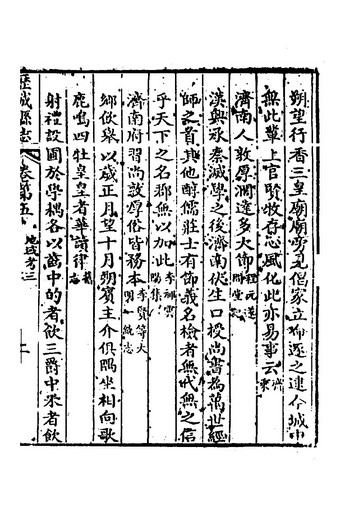 朔望行香三皇廟廟旁見倡家立命逐之建今城中
無此輩上官賢牧存心風化此亦易事云齊乘
濟南人敦厚濶達多大節程文達閔堂記
漢興承秦滅學之後濟南伏生口授尚書為萬世經
師之首其他醇儒莊士有節義名檢者無代無之信
乎天下之名郡無以加此李祁雲陽集
濟南府習尚敦厚俗皆務本李賢等大明一統志
鄉飲舉以歲正月望十月朔賓主介俱隅坐相向歌
鹿鳴四牡皇皇者華讀律舊志
射禮設圃於學隅各以籌中的者飲三爵中采者飲
歷城縣志 卷第五 地域考三